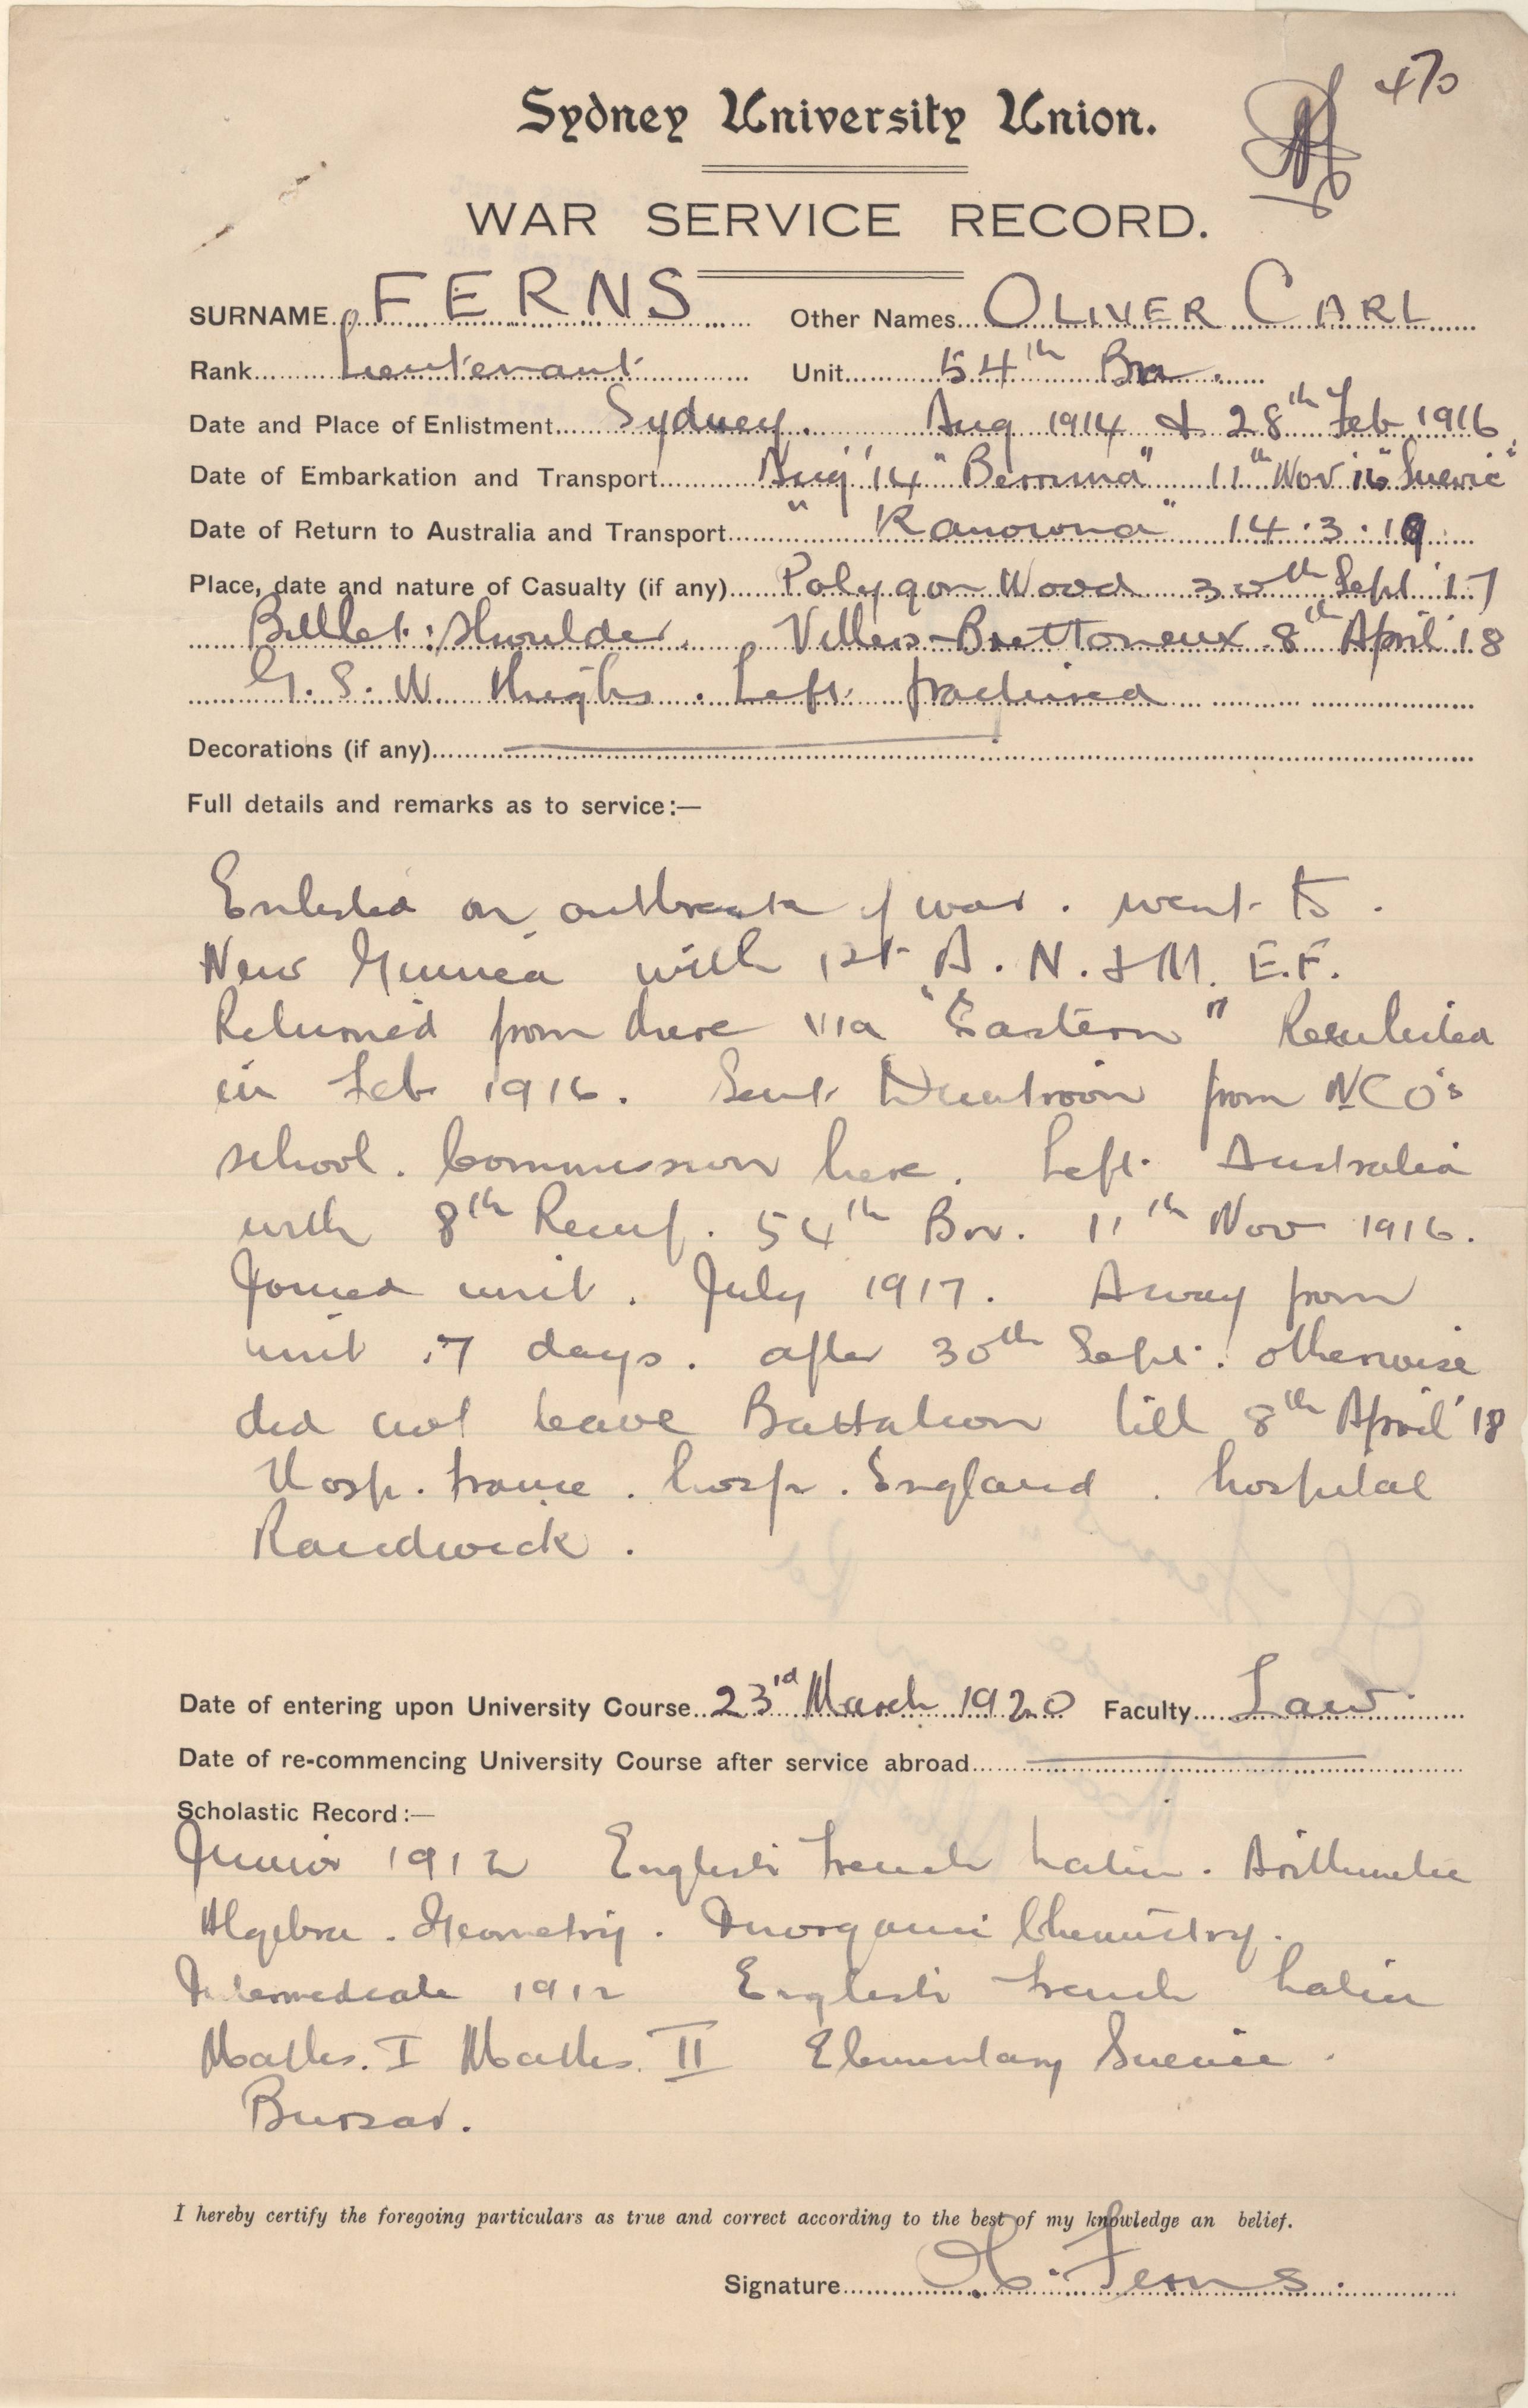 470
Sydney University Union.
WAR SERVICE RECORD.
SURNAME FERNS Other Names OLIVER CARL
Rank Lieutenant Unit 54th Bn.
Date and Place of Enlistment Sydney. Aug 1914 & 28th Feb 1916
Date of Embarkation and Transport Aug '14 "Berrima" 11th Nov 16 "Suevic"
Date of Return to Australia and Transport "Kanowna" 14.3.19
Place, date and nature of Casualty (if any) Polygon Wood 30th Sept '17
Bullet: Shoulder. Villers-Brettoneux 8th April '18
G.S.W. Thighs. Left fractured
Decorations (if any)
Full details and remarks as to service:—
Enlisted on outbreak of war. went to.
New Guinea with 1st A. N. & M. E.F.
Returned from there via "Eastern" Reenlisted
in Feb 1916. Sent Duntroon from NCO's
school. Commission here. Left Australia
with 8th Reinf. 54th Bn. 11th Nov 1916.
Joined unit. July 1917. Away from
unit 7 days. after 30th Sept. otherwise
did not leave Battalion till 8th April '18
Hosp. France. hosp. England. hospital
Randwick.
Date of entering upon University Course 23rd March 1920 Faculty Law
Date of re-commencing University Course after service abroad
Scholastic Record:—
Junior 1912 English French Latin. Arithmetic
Algebra. Geometry. Inorganic Chemistry.
Intermediate 1912 English French Latin
Maths. I Maths. II Elementary Science.
Bursar.
I hereby certify the foregoing particulars as true and correct according to the best of my knowledge an belief.
Signature O.C. Ferns.